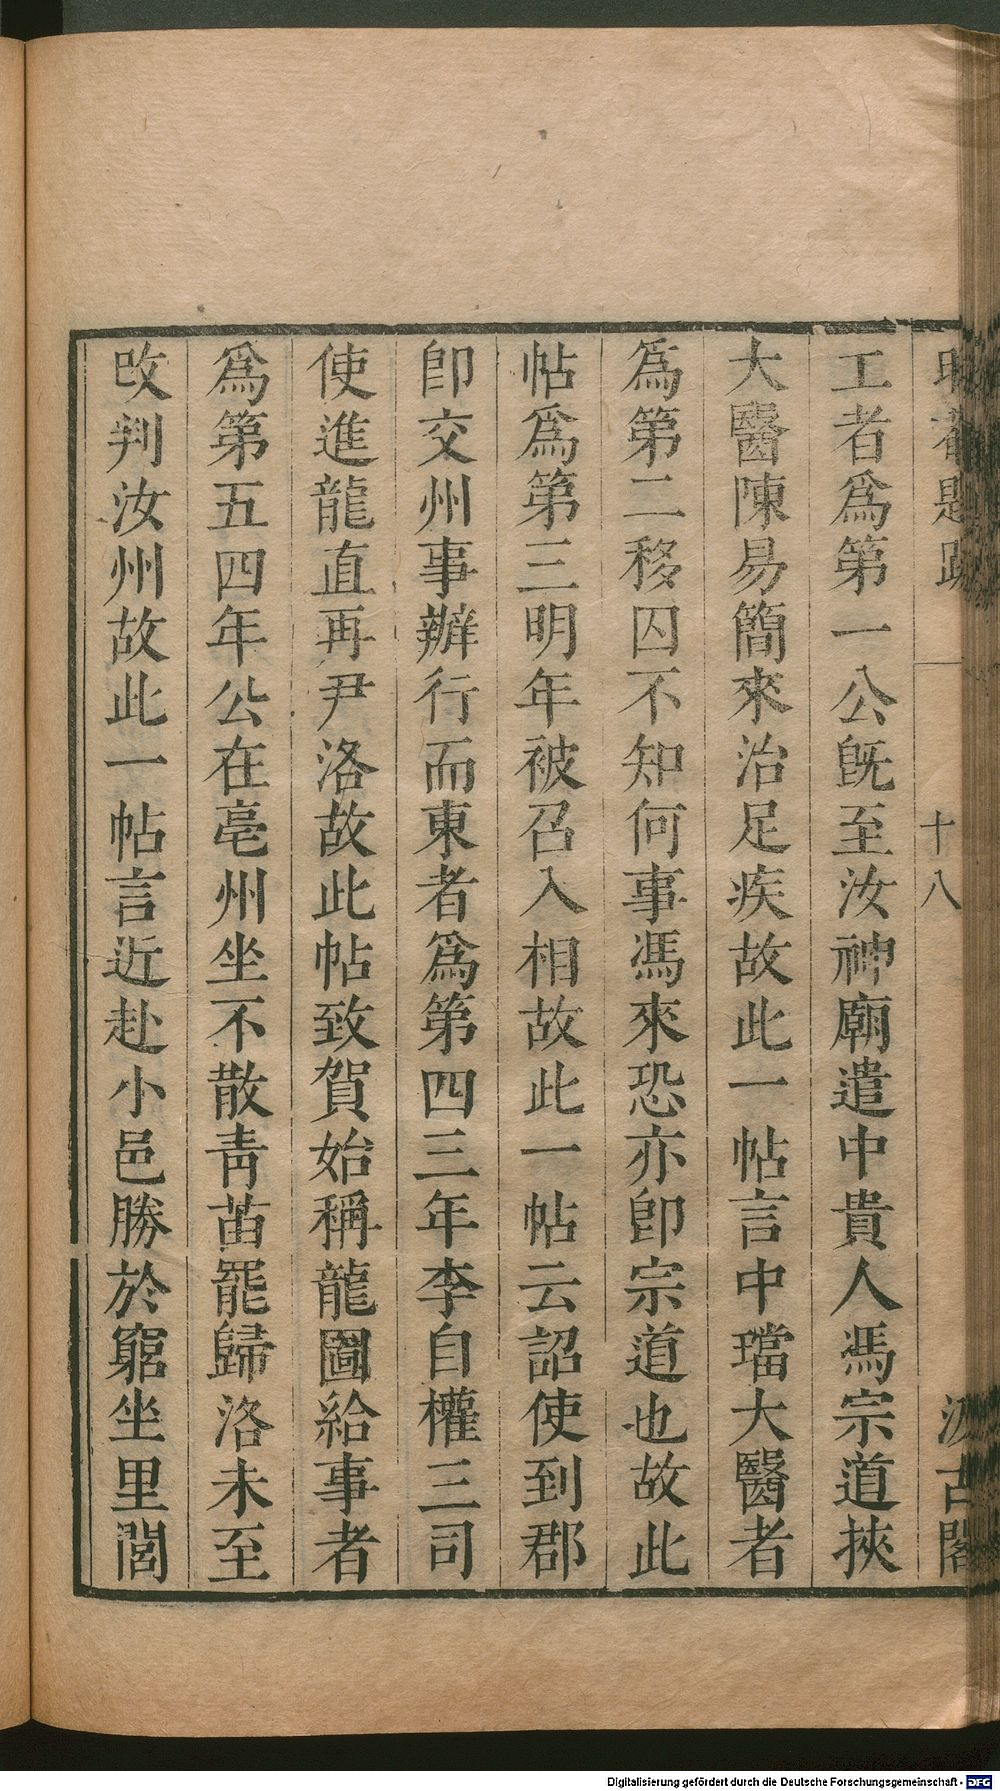 十八
工者爲第一公旣至汝神廟遣中貴人馮宗道挾
大醫陳易簡來治足疾故此一帖言中璫大醫者
爲第二移囚不知何事馮來恐亦卽宗道也故此
帖爲第三明年被召入相故此一帖云詔使到郡
卽交州事辦行而東者爲第四三年李自權三司
使進龍直再尹洛故此帖致賀始稱龍圖給事者
爲第五四年公在亳州坐不散靑苗罷歸洛未至
改判汝州故此一帖言近赴小邑勝於窮坐里閭
Digitalisierung gefördert durch die Deutsche Forschungsgemeinschaft - DFG